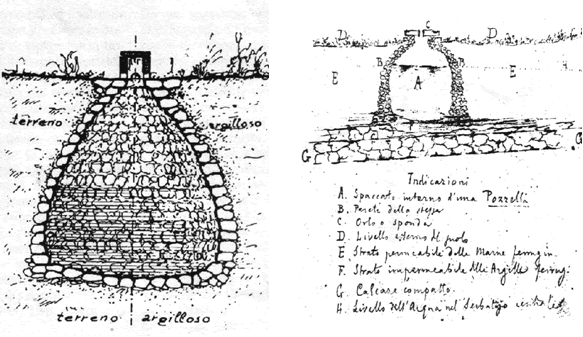 terreno
argilloso
terreno argilloso
C
D
D
B
B
E
A
E
H
G
G
Indicazioni
A. Spaccato interno d'una Pozzella
B. Pareti della stessa
C. Orlo o sponda
D. Livello esterno del suolo
E Strato permeabile delle Marne ferrugin.
F. Strato impermeabile delle Argille ferrug.
G. Calcare compatto.
H. Livello dell'Acqua nel Serbatojo